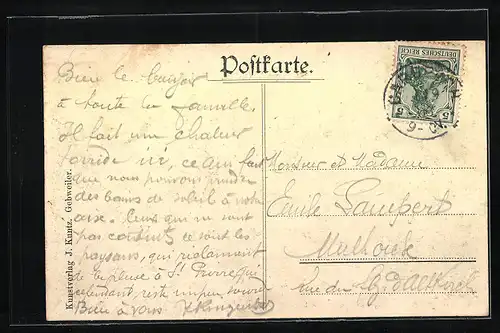 Postkarte.
Bien le bonjour
à toute la famille.
Il fait une chaleur
torride ici, ce qui fait
que nous pouvons prendre
des bains de soleil à notre
aise. Ceux qui ne sont
pas contents ce sont les
paysans, qui réclament
de la pluie à St Pierre qui
cependant, reste un peu sourd
Bien à vous
Monsieur et Madame
Emile Lampert
Mulhouse
Rue du
Kunstverlag J. Kuntz, Gebweiler.
DEUTSCHES REICH
5 5
9-